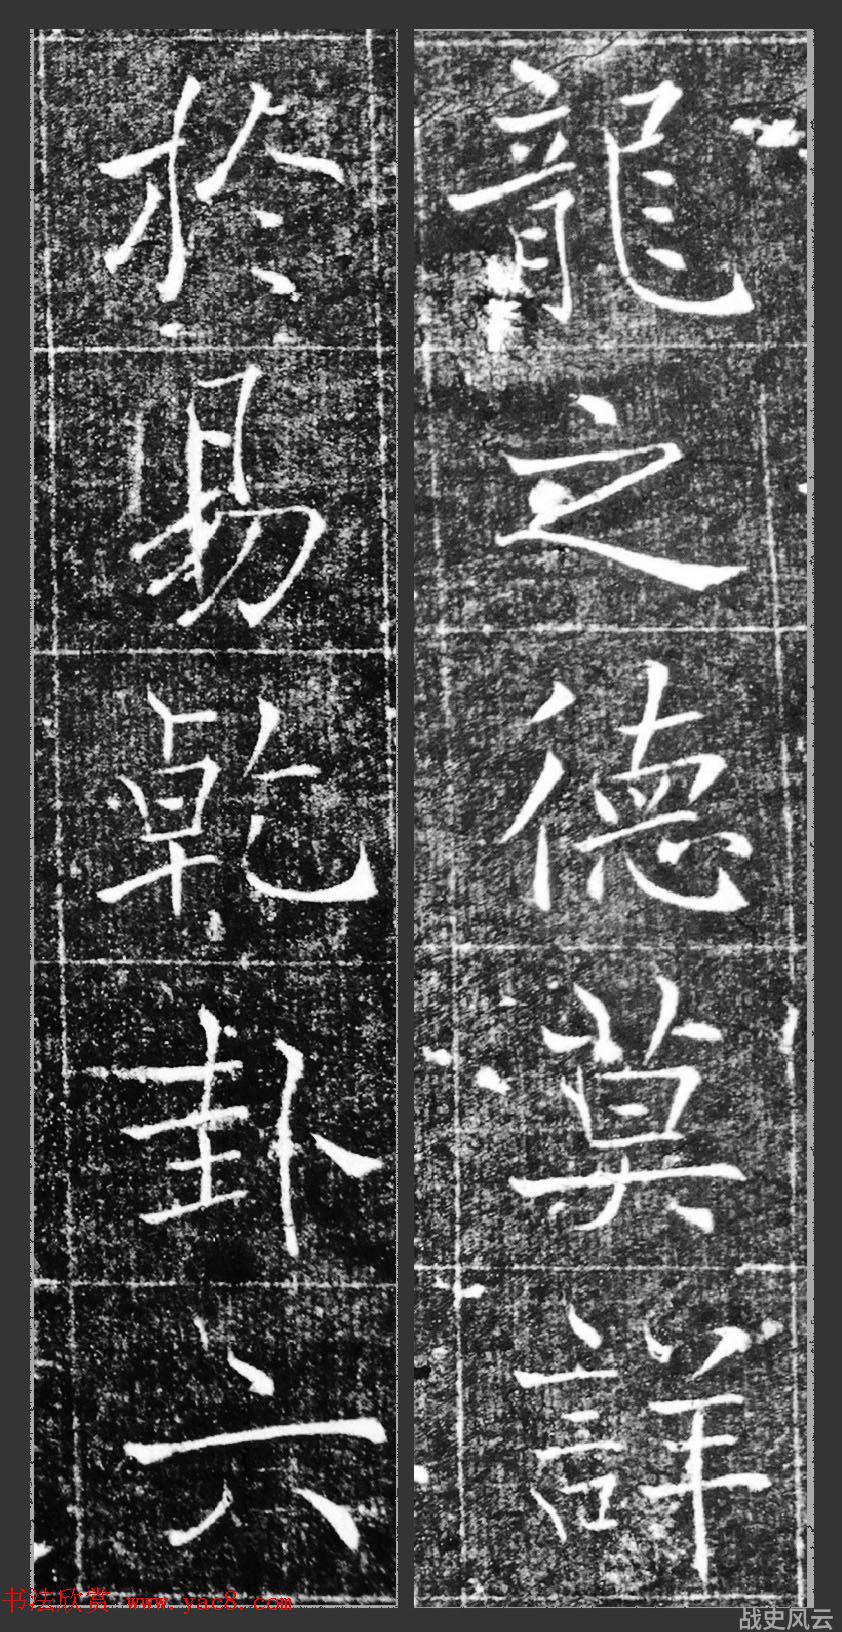 龍之德莫詳
於易乾卦六
书法欣赏 www.yac8.com
战史风云